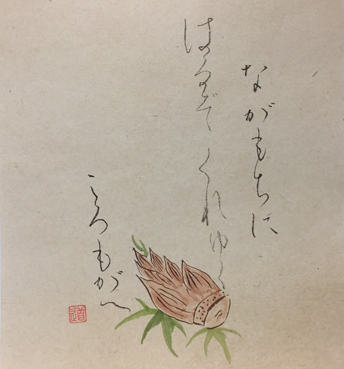 ながもちに
はるぞくれゆく
ころもがへ